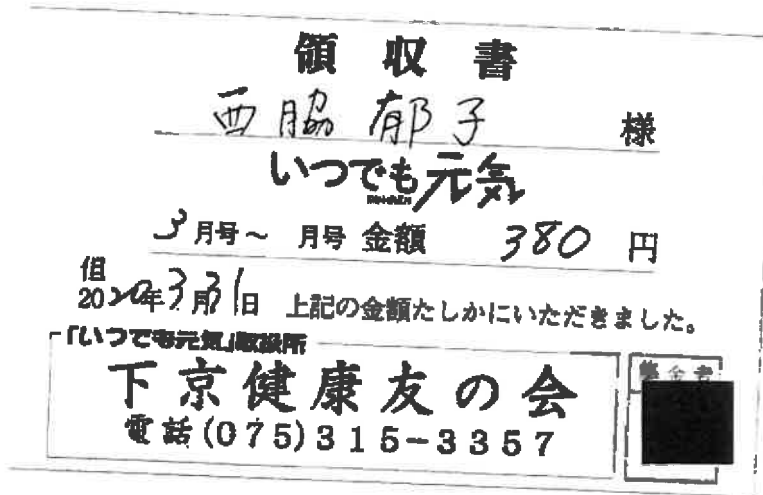 領収書
西脇 郁子 様
いつでも元気
3月号～ 月号 金額 380 円
但
2020年3月31日 上記の金額たしかにいただきました。
「いつでも元気」取扱所
集金者
下京健康友の会
電話(075)315-3357